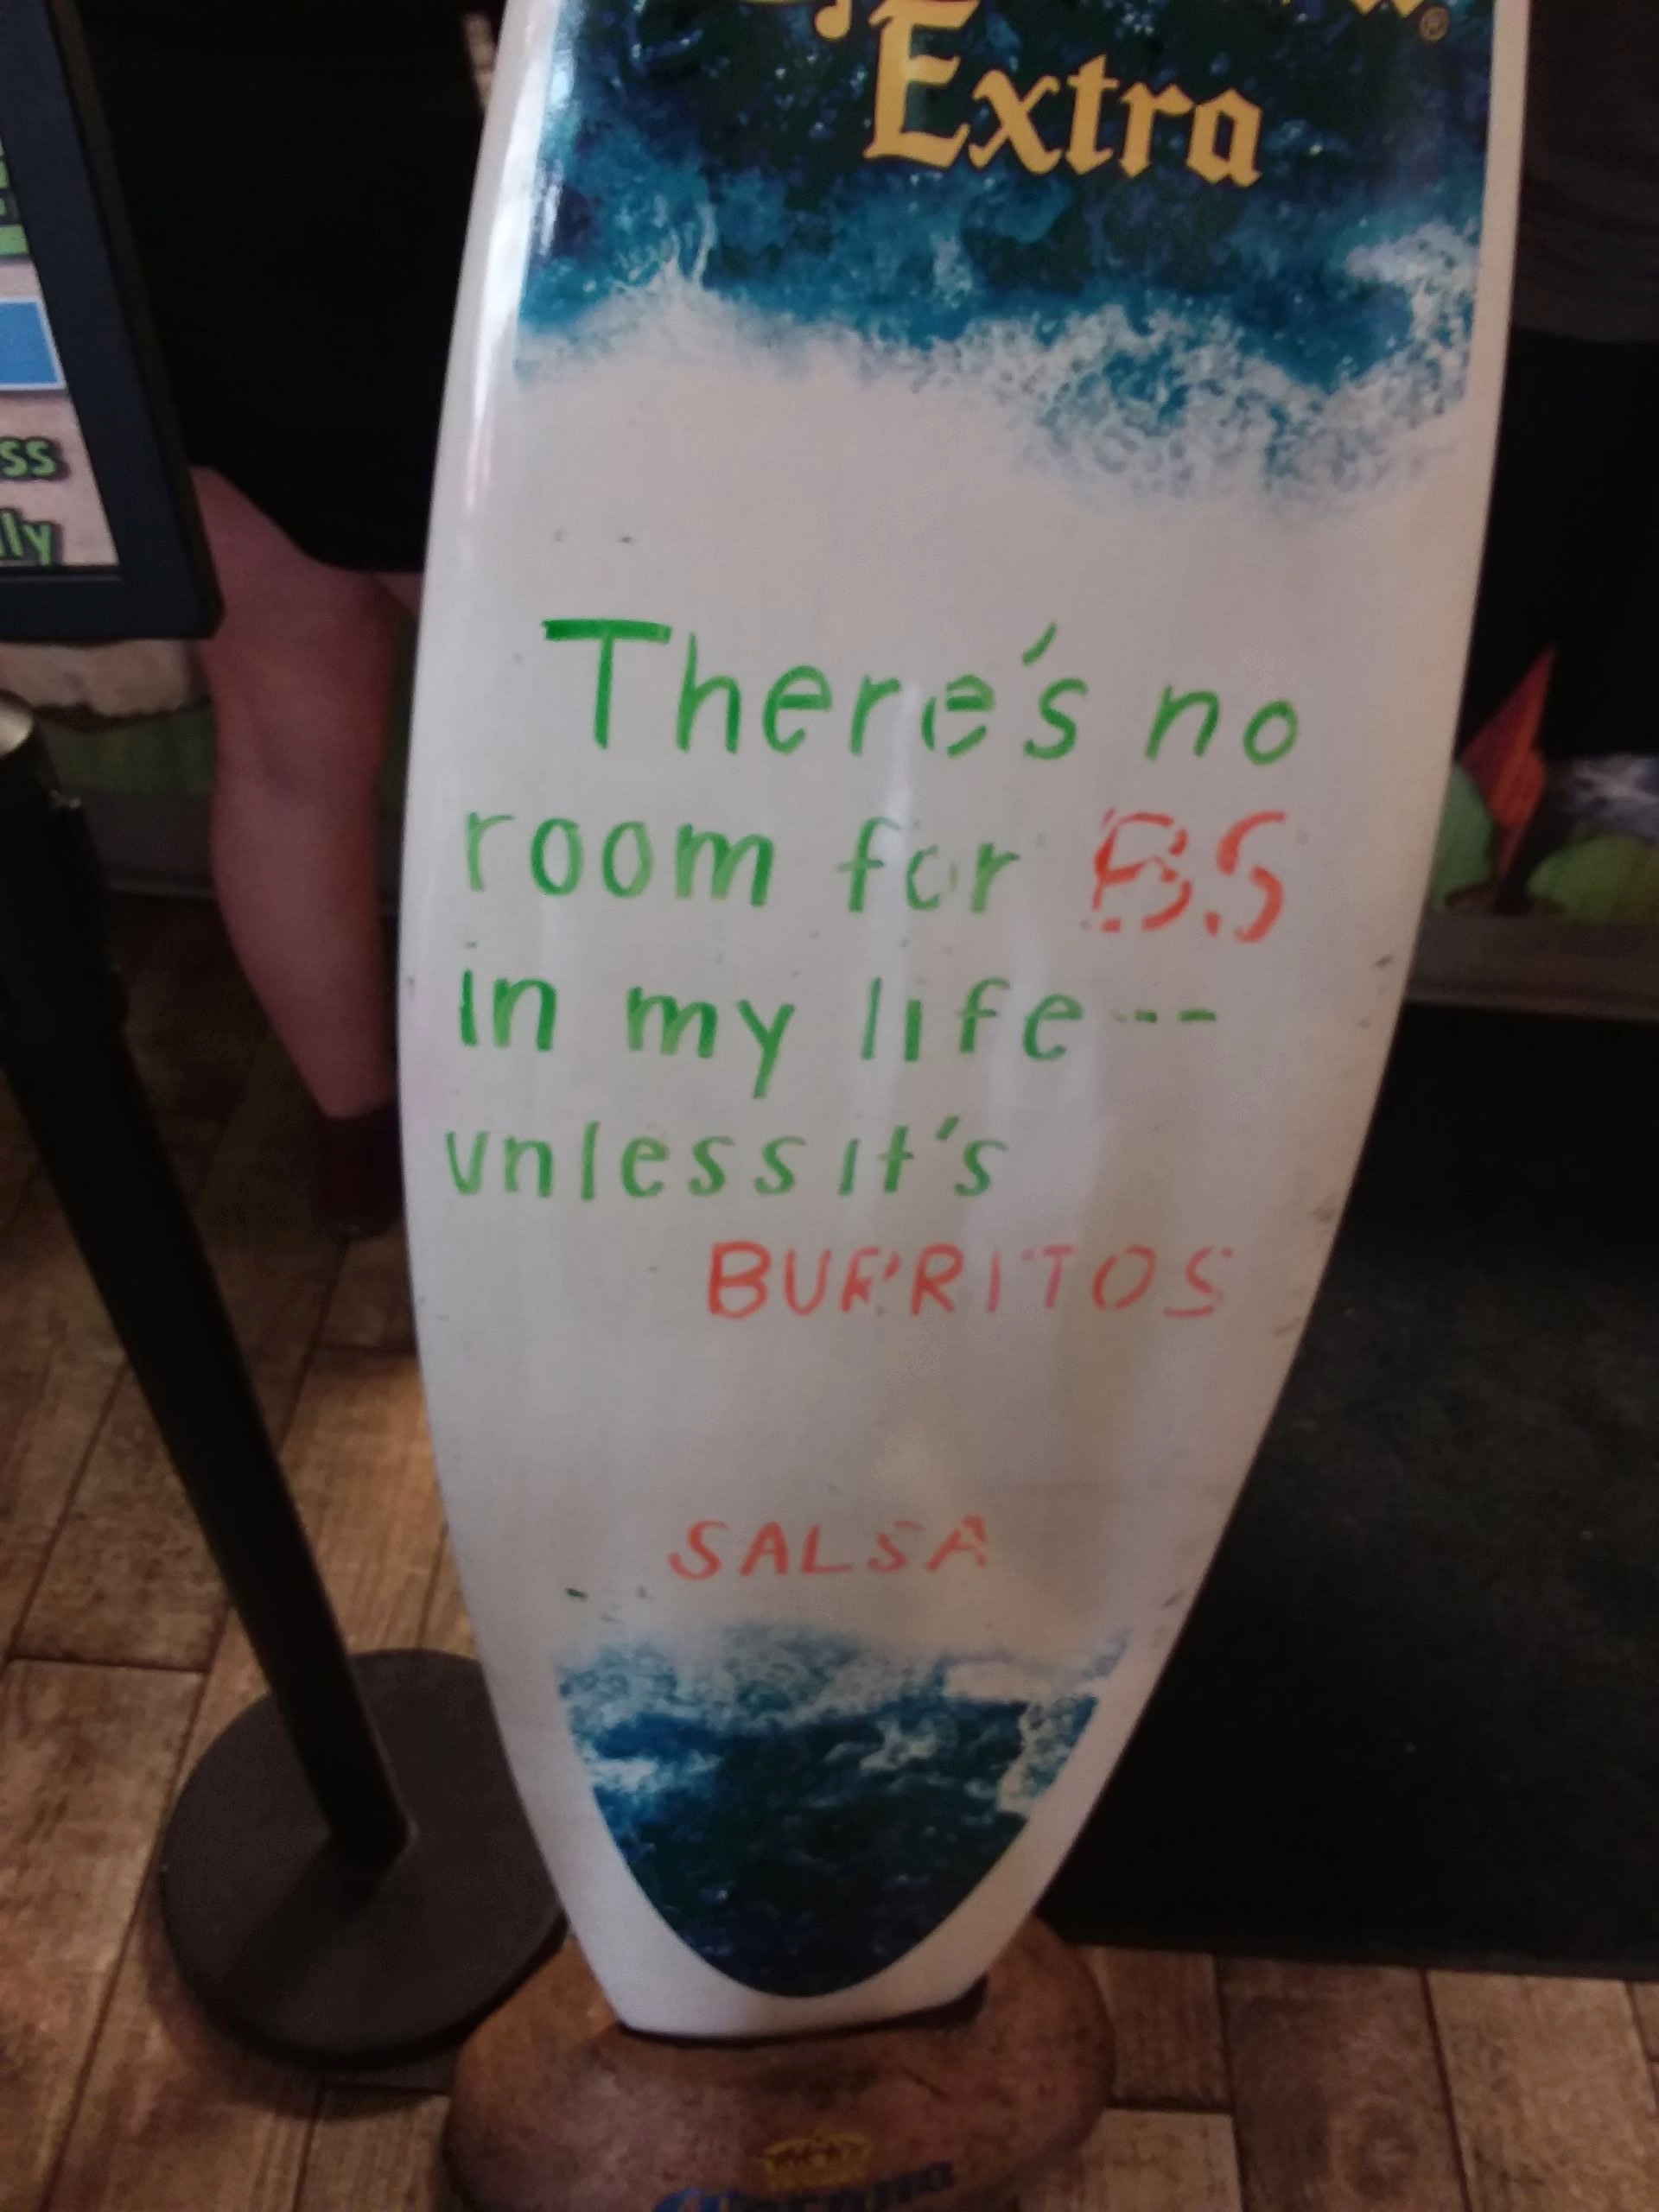 Extra
There's no
room for BS
in my life---
unless it's
BURRITOS
SALSA
ss
lly
Corona